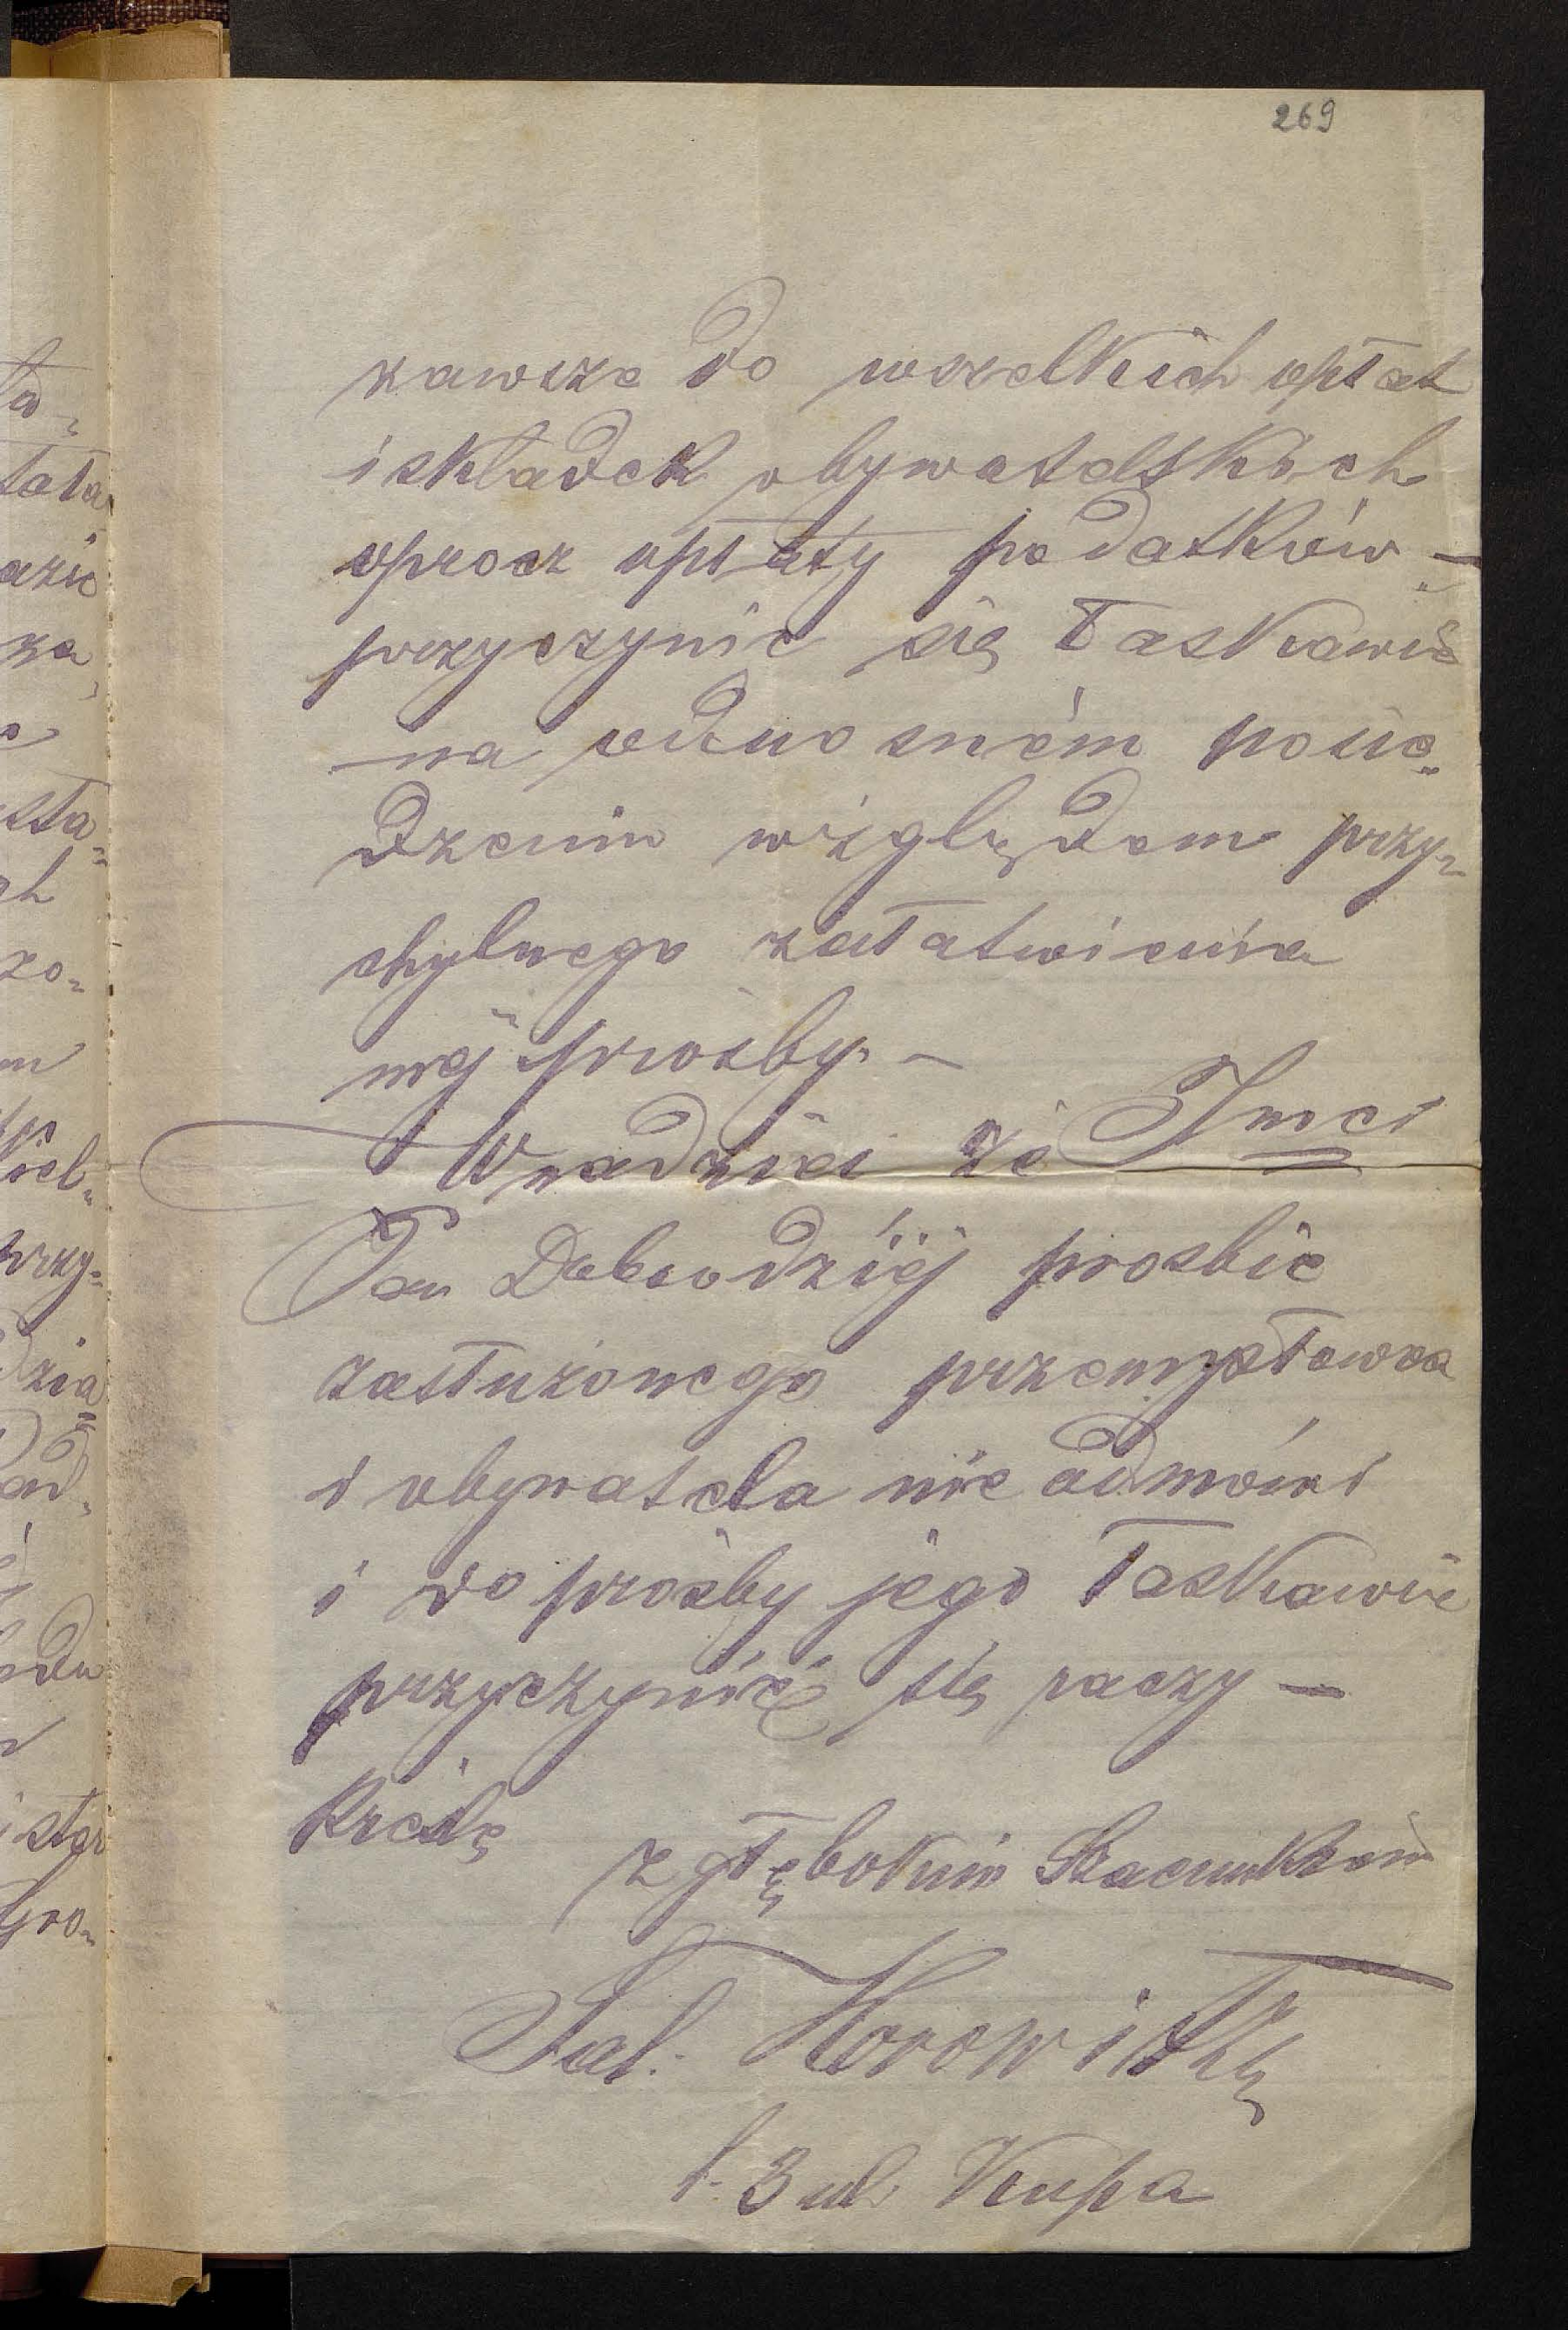 269
zawsze do wszelkich opłat
i składek obywatelskich
oprocz opłaty podatków –
przyczynić się łaskawie
na odnosném posie„
dzeniu względem przy„
chylnego załatwienia
mej prośby. –
W nadziei że Jmci
Pan Dobrodziéj prosbie
zasłużonego przemysłowca
i obywatela nie odmówi
i do prośby jego łaskawie
przyczynić się raczy –
Kreslę
z głębokim Szacunkiem
Sal. Horowitz
l. 3 ul. Kupa